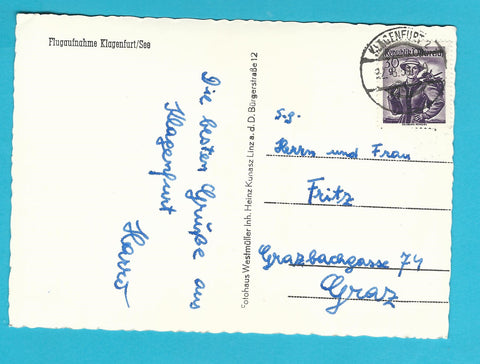 Flugaufnahme Klagenfurt/See
Die besten Grüße aus
Klagenfurt
Fotohaus Westmüller Inh. Heinz Kunasz Linz a. d. D. Bürgerstraße 12
KLAGENFURT 2
30
S.g.
Herrn und Frau
Fritz
Grazbachgasse 74
Graz